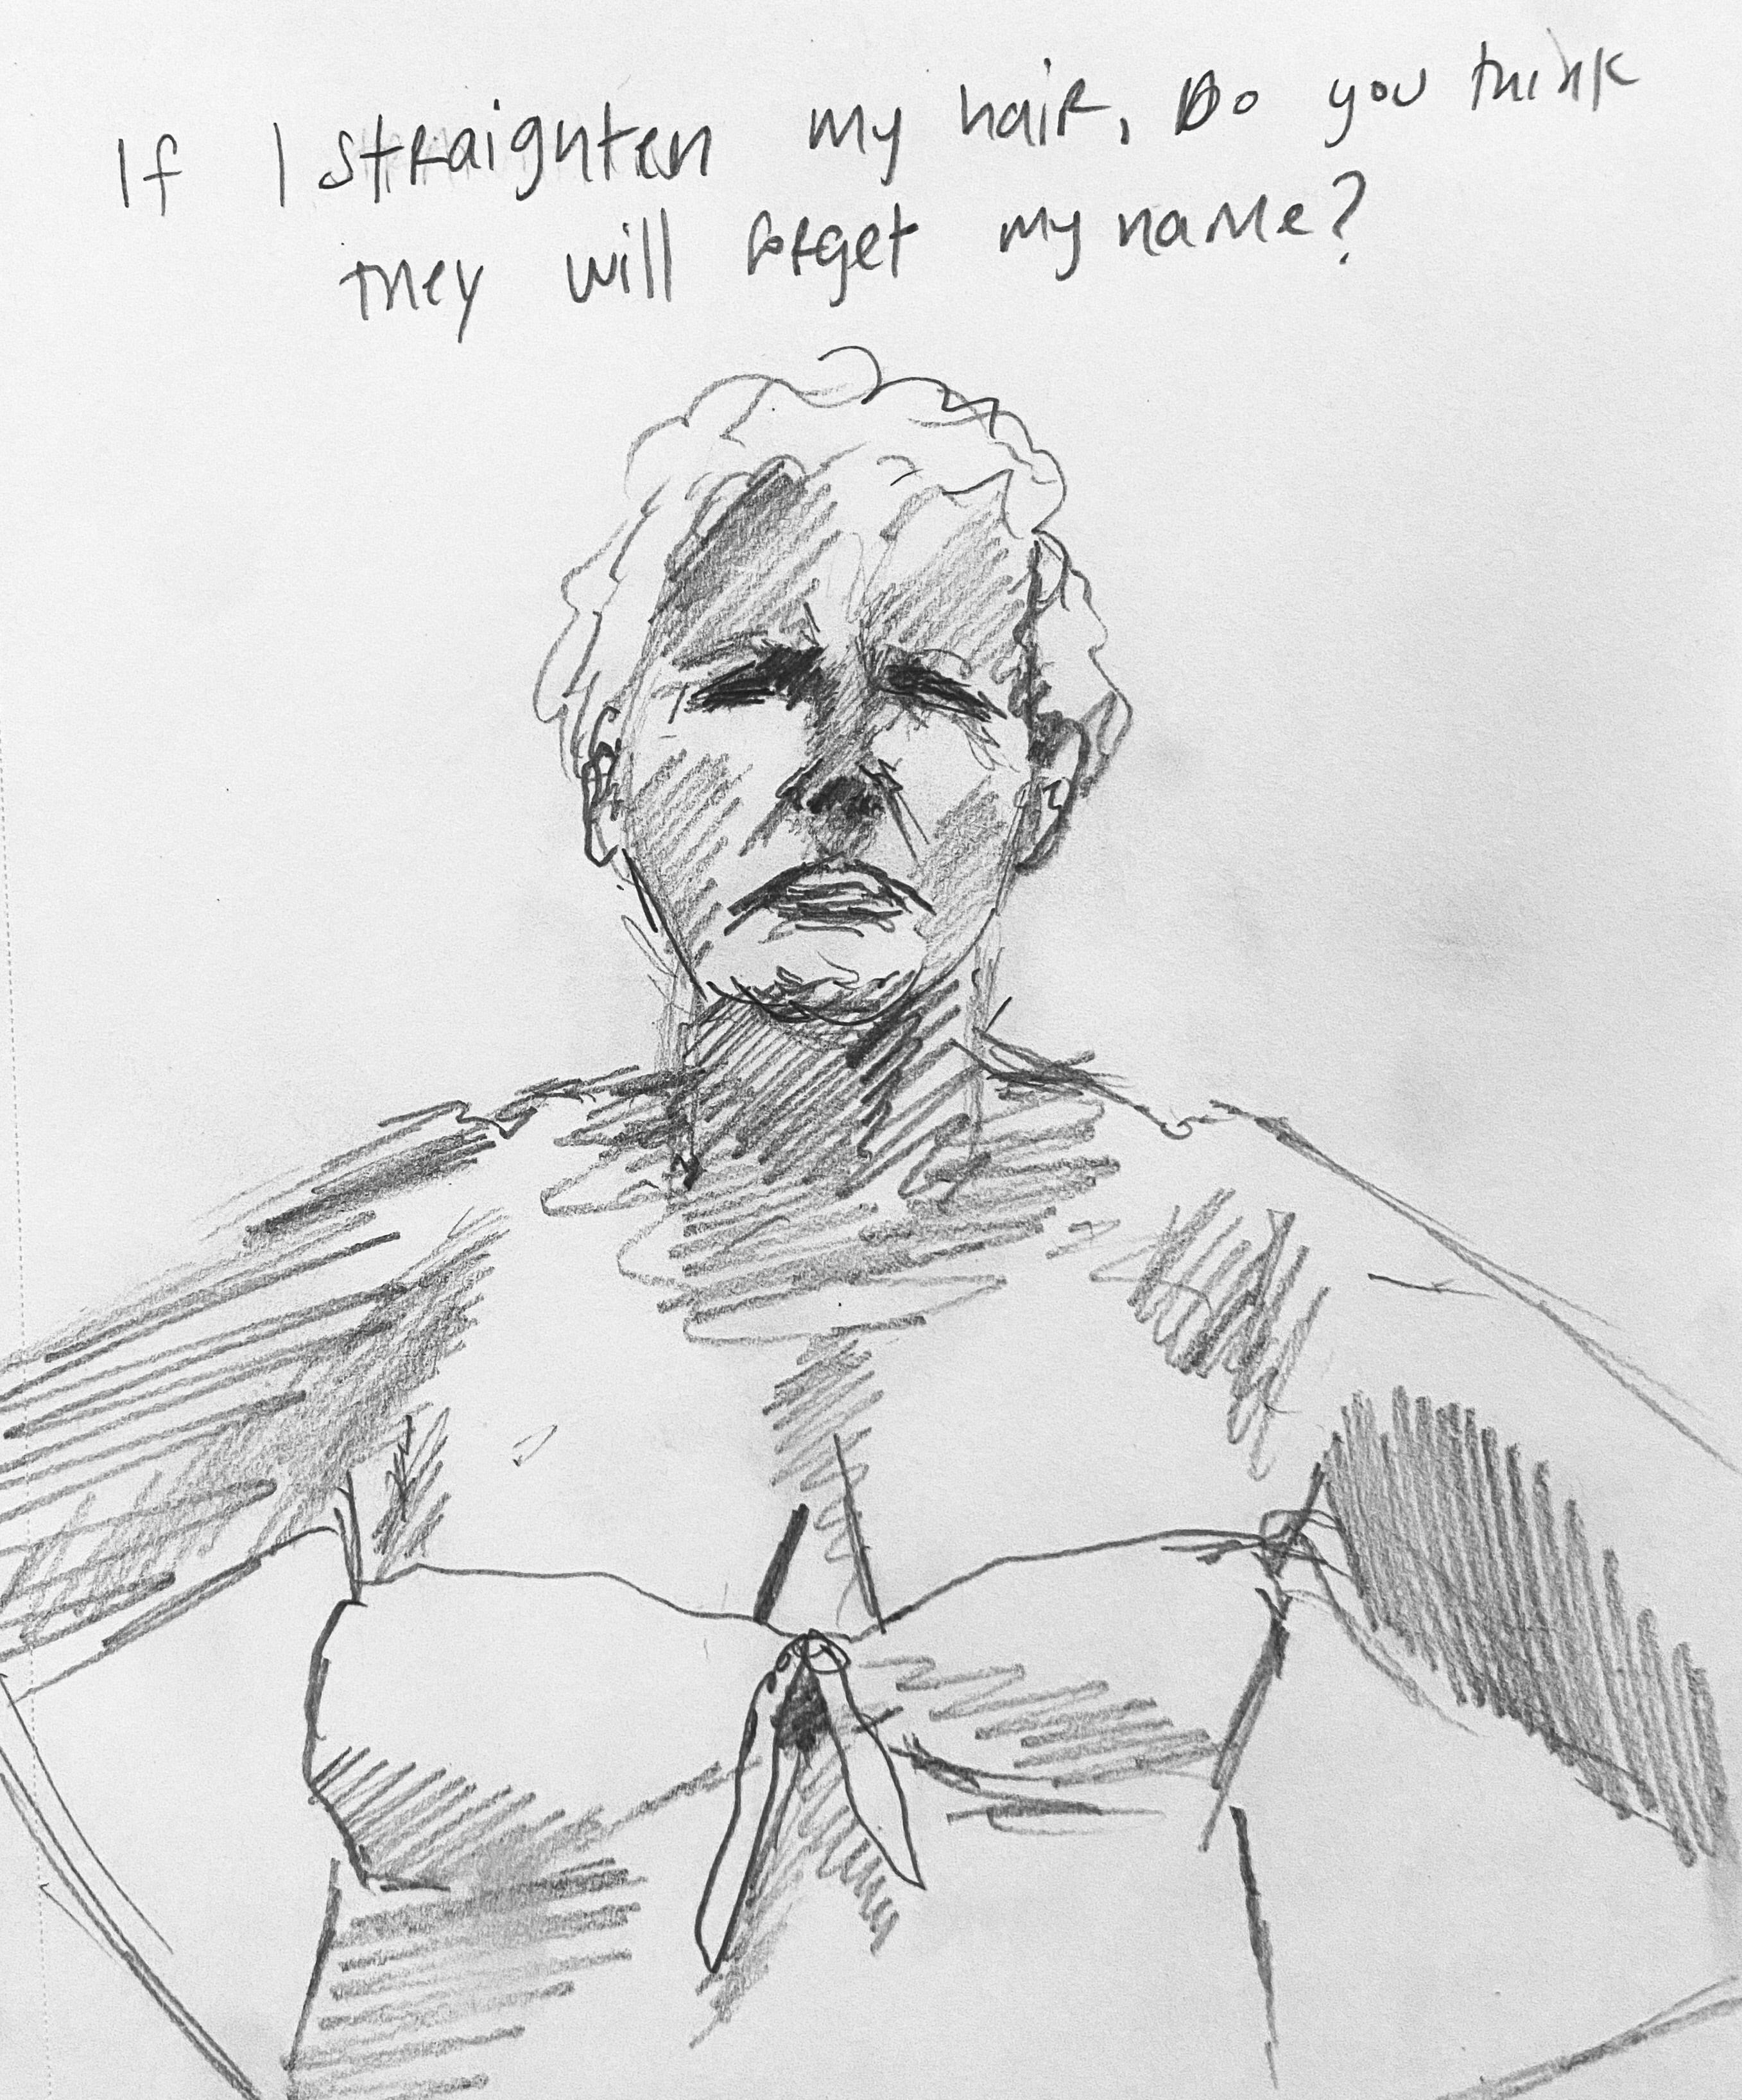 If I straighten my hair, Do you think
they will forget my name?